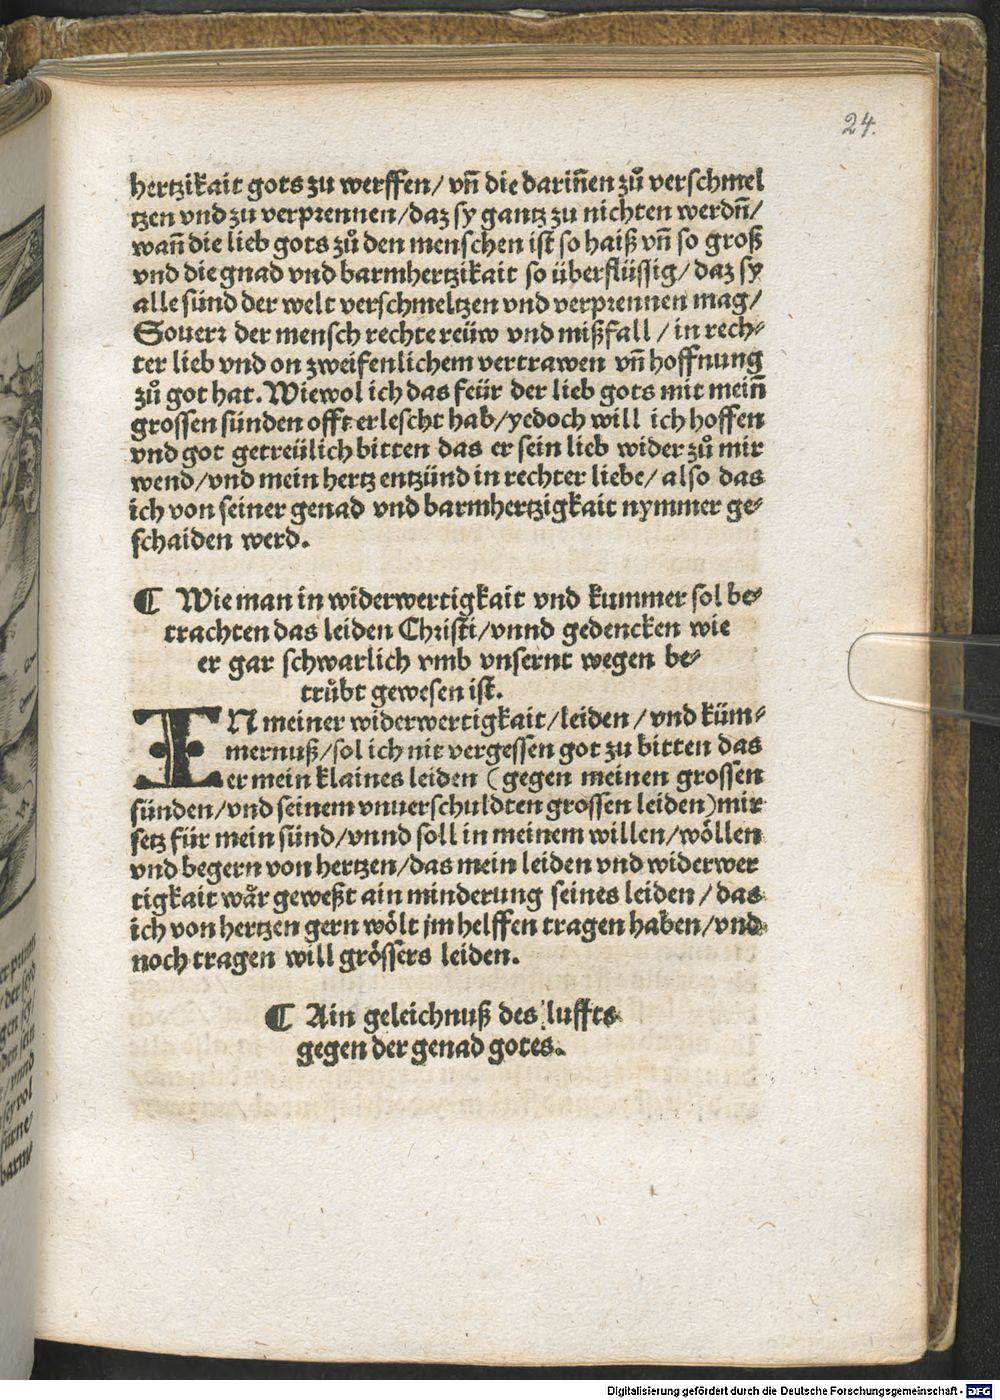 24.
hertzikait gots zu werffen/ vñ die dariñen zů verschmel
tzen vnd zu verprennen/daz sy gantz zu nichten werdñ/
wañ die lieb gots zů den menschen ist so haiß vñ so groß
vnd die gnad vnd barmhertzikait so überflüssig/daz sy
alle sünd der welt verschmeltzen vnd verprennen mag/
Souerr der mensch rechte reüw vnd mißfall/in rech⸗
ter lieb vnd on zweifenlichem vertrawen vñ hoffnung
zů got hat. Wiewol ich das feür der lieb gots mit meiñ
grossen sünden offt erlescht hab/yedoch will ich hoffen
vnd got getreülich bitten das er sein lieb wider zů mir
wend/vnd mein hertz entzünd in rechter liebe/also das
ich von seiner genad vnd barmhertzigkait nymmer ge⸗
schaiden werd.
¶ Wie man in widerwertigkait vnd kummer sol be⸗
trachten das leiden Christi/vnnd gedencken wie
er gar schwarlich vmb vnsernt wegen be⸗
trůbt gewesen ist.
IN meiner widerwertigkait/leiden/vnd küm⸗
mernuß/sol ich nit vergessen got zu bitten das
er mein klaines leiden (gegen meinen grossen
sünden/vnd seinem vnuerschuldten grossen leiden) mir
setz für mein sünd/vnnd soll in meinem willen/wöllen
vnd begern von hertzen/das mein leiden vnd widerwer
tigkait wår geweßt ain minderung seines leiden/das
ich von hertzen gern wölt jm helffen tragen haben/vnd
noch tragen will grössers leiden.
¶ Ain geleichnuß des luffts
gegen der genad gotes.
Digitalisierung gefördert durch die Deutsche Forschungsgemeinschaft - DFG